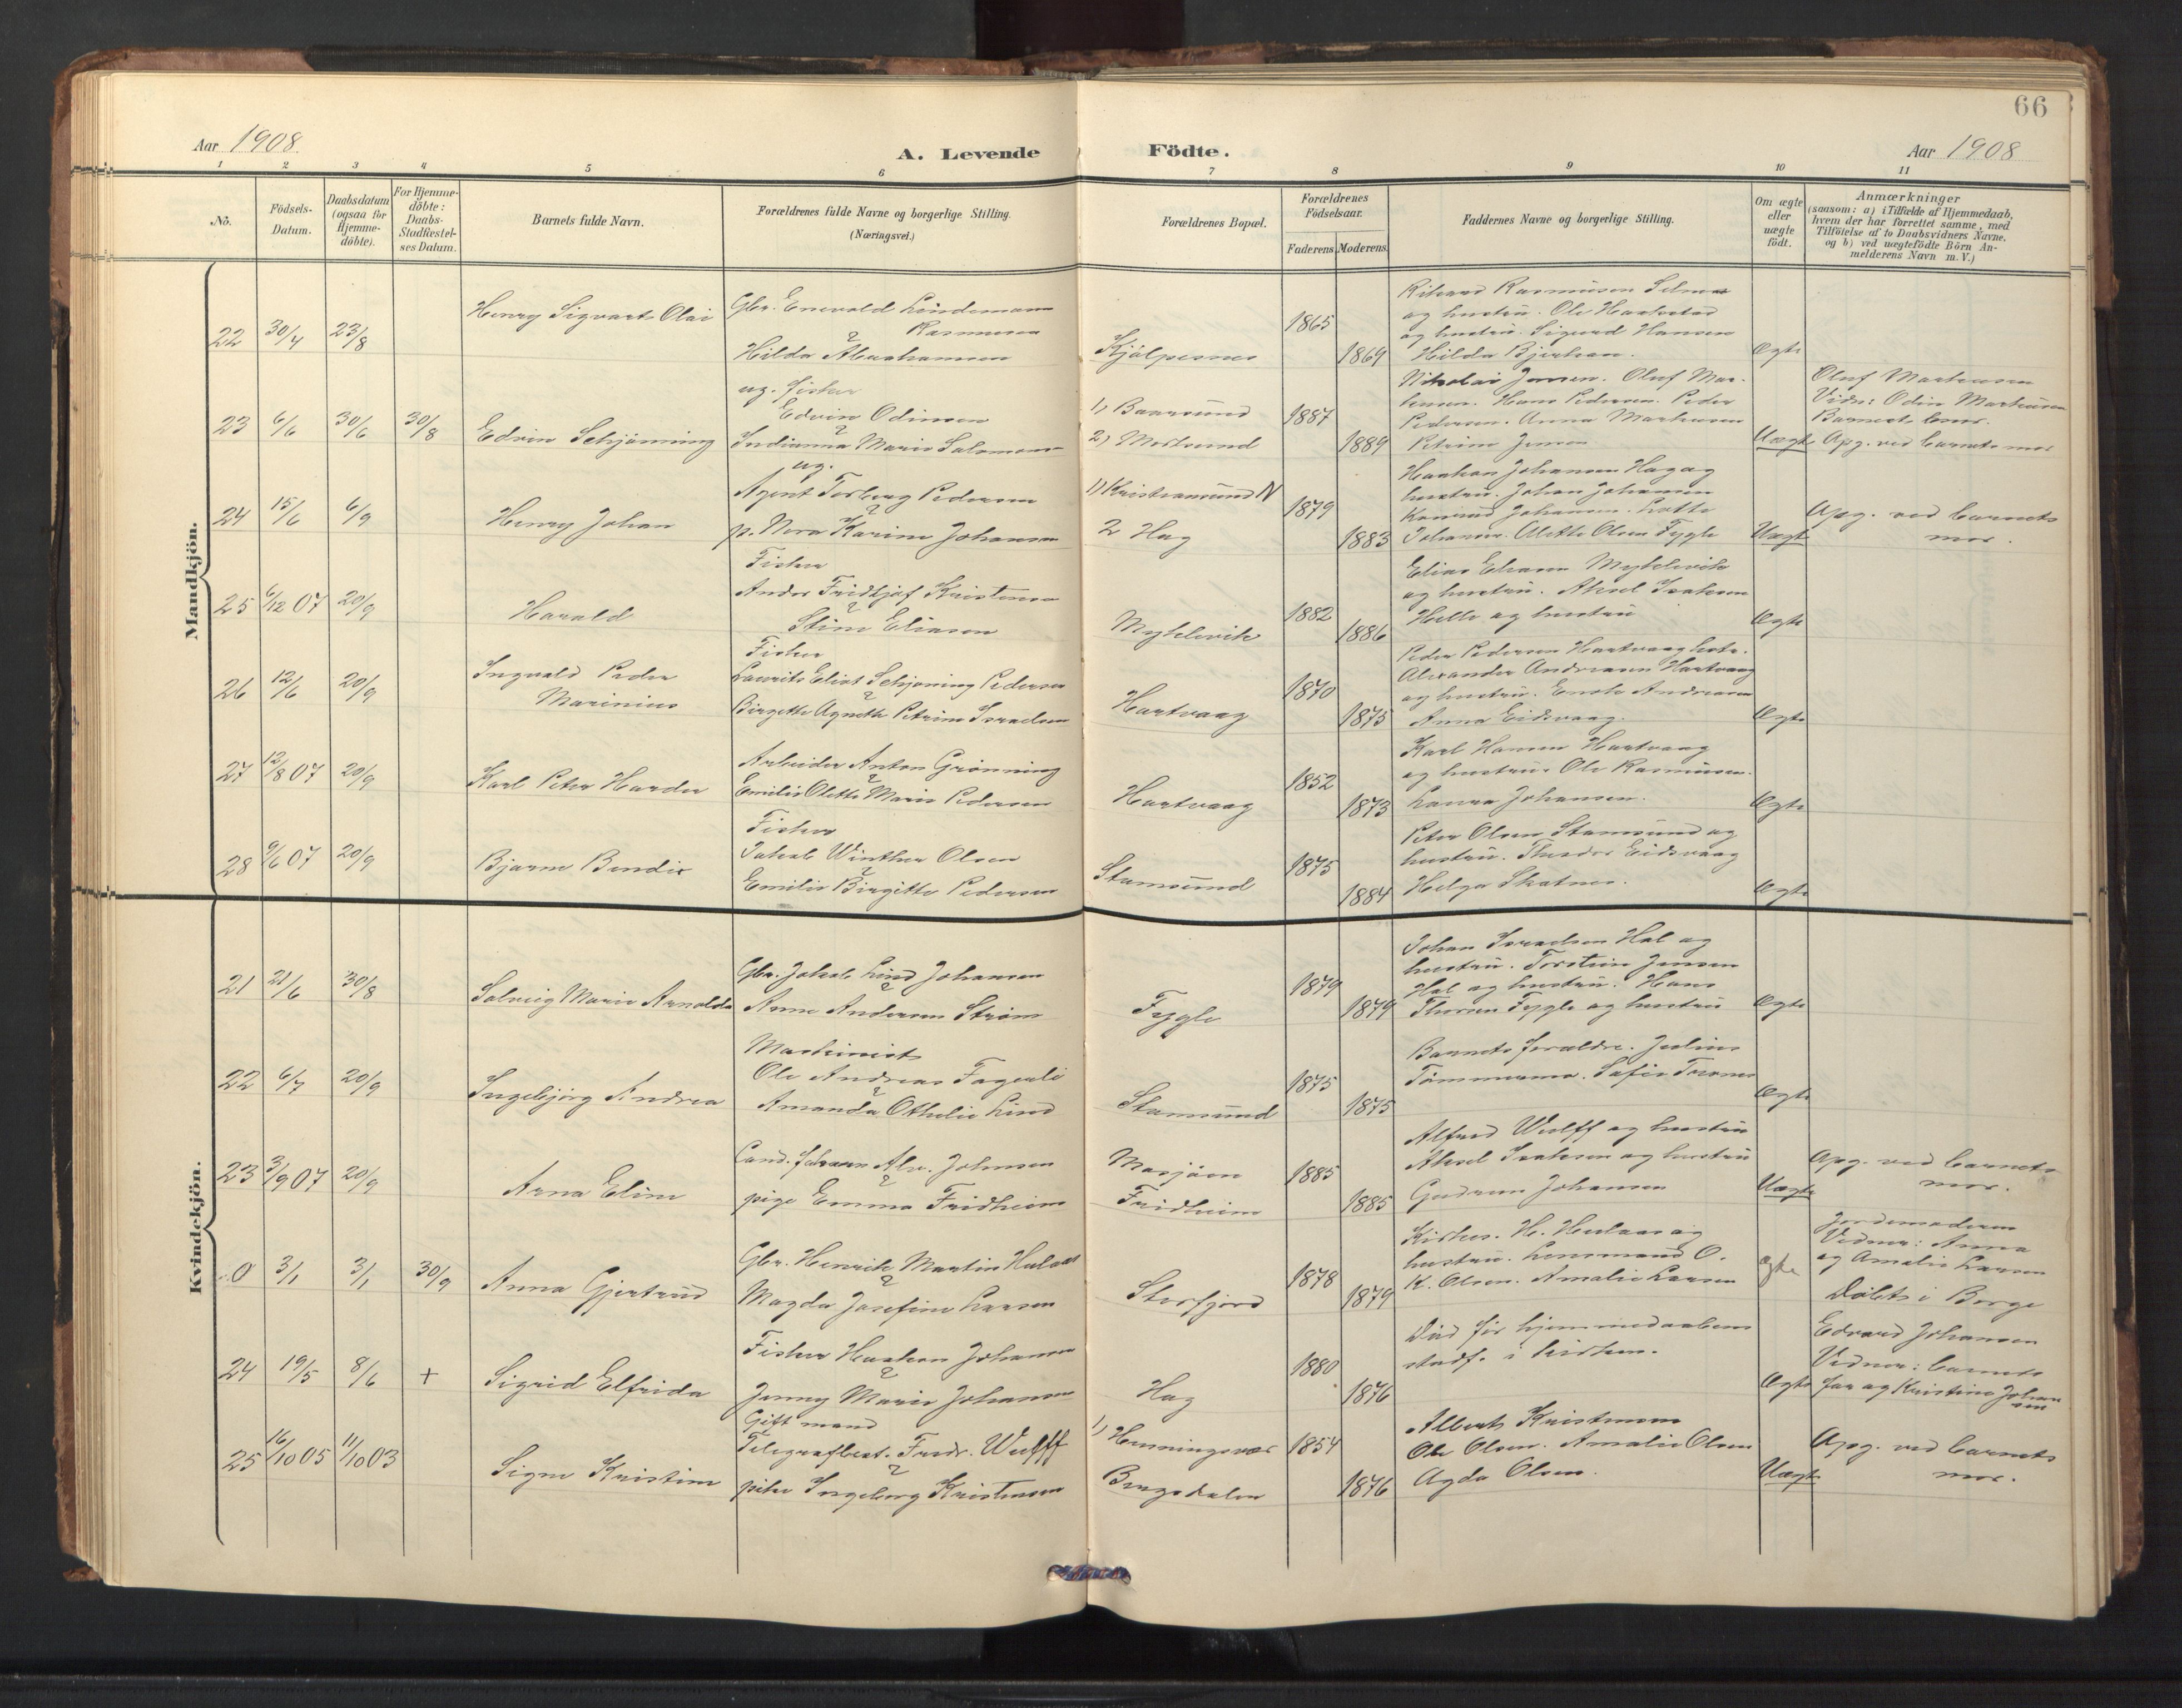 66
Aar 1908
A. Levende
Födte.
Aar 1908
1 2 3 4 5 6 7 8 9 10 11
No.
Födsels-
Datum.
Daabsdatum
(ogsaa for
Hjemme-
döbte).
For Hjemme-
döbte:
Daabs-
Stadfæstel-
ses Datum.
Barnets fulde Navn.
Forældrenes fulde Navne og borgerlige Stilling.
(Næringsvei.)
Forældrenes Bopæl.
Forældrenes
Födselsaar.
Faderens Moderens
Faddernes Navne og borgerlige Stilling.
Om ægte
eller
uægte
födt.
Anmærkninger
(saasom: a) i Tilfælde af Hjemmedaab,
hvem der har forrettet samme, med
Tilföielse af to Daabsvidners Navne.
og b) ved uægtefödte Börn An-
melderens Navn m. V.)
Mandkjön.
22 30/4 23/8
Henry Sigvart Olai
Gbr. Enevold Lindemann
Rasmusen
&
Hilda Abrahamsen
Kjölpesnes
1865
1869
Rikard Rasmussen
og hustru. Ole
og hustru. Sigurd Hansen
Hilda
Ægte
23 6/6 30/6 30/8
Edvin Schjönning
ug. fisker
Edvin Odinsen
&
Indianna Marie Salomons
ug.
1) Baarsund
2) Mortsund
1887
1889
Nikolai Jensen. Oluf Mar-
Hans Pedersen. Peder
Pedersen. Anna
Petrine Jensen
Uægte
Oluf
Vidn: Odin
Barnets
Opg. ved barnets mor
24 15/6 6/9
Henry Johan
Agent Torberg Pedersen
&
p. Nora Karine Johansen
1) Kristiansund N
2 Hag
1879
1883
Haakon Johansen Hag og
hustru. Johan Johansen
Konrad Johansen. Lotte
Johansen. Aletta Olsen Fygle
Uægte
Opg. ved barnets
mor.
25 6/12 07 20/9
Harald
Fisker
Andor Fridtjof Kristensen
&
Stine Eliasen
Myklevik
1882
1886
Elias Eliasen Myklevik
og hustru. Aksel Isaksen
Helle og hustru
Ægte
26 12/6 20/9
Ingvald Peder
Marinius
Fisker
Laurits Eliot Schjöning Pedersen
&
Birgitte Agnethe Petrine Israelsen
Hartvaag
1870
1875
Peder Pedersen Hartvaag
Alexander Andreasen Hartvaag
og hustru. Andreasen
Anna Eidsvaag.
Ægte
27 12/8 07 20/9
Karl Peter Harder
Arbeider Anton Grönning
&
Emilie Oletta Marie Pedersen
Hartvaag
1852
1873
Karl Hansen Hartvaag
og hustru. Ole Rasmussen.
Laura Johansen.
Ægte
28 9/6 07 20/9
Bjarne Bendix
Fisker
Jakob Winther Olsen
&
Emilie Birgitte Pedersen
Stamsund
1875
1884
Peter Olsen Stamsund og
hustru. Theodor Eidsvaag
Helga Skatnes.
Ægte
Kvindekjön.
21 21/6 30/8
Solveig Marie Arnolda
Gbr. Jakob Lind Johansen
&
Anne Andersen Ström
Fygle
1879
1879
Johan Israelsen Hol og
hustru. Torstein Jensen
Hol og hustru. Hans
Thoresen Fygle og hustru
Ægte
22 6/7 20/9
Ingebjörg Andrea
Maskinist
Ole Andreas Fagerli
&
Amanda Othelie Lind
Stamsund
1875
1875
Barnets foraldre. Julius
Ægte
23 3/9 07 20/9
Arna Eline
Cand. Alv. Johnsen
&
pige Emma Fridheim
Mosjöen
Fridheim
1885
1885
Alfred Wulff og hustru
Aksel Isaksen og hustru
Gudrun Johansen
Uægte
Opg. ved barnets
mor.
0 3/1 3/1 30/9
Anna Gjertrud
Gbr. Henrik Martin
&
Magda Josefine Larsen
Storfjord
1878
1879
H. og
hustru. Lensmand O.
K. Olsen. Amalie Larsen
ægte
Jordmoderen
Vidner: Anna
og Amalie Larsen
Döbt i Borge
24 19/5 8/6 +
Sigrid Elfrida
Fisker Haakon Johansen
&
Jenny Marie Johansen
Hag
1880
1876
Död för hjemmedaaben
stadf. i kirken.
Ægte
Edvard Johansen
Vidner: barnets
far og Kristine Johan
sen
25 16/10 05 11/10 03
Signe Kristine
Gift mand
Telegrafbest. Fredr. Wulff
&
pike Ingeborg Kristensen
1) Henningsvær
1854
1876
Albert Kristensen
Ole Olsen. Amalie Olsen
Agda Olsen.
Uægte
Opg. ved barnets
mor.